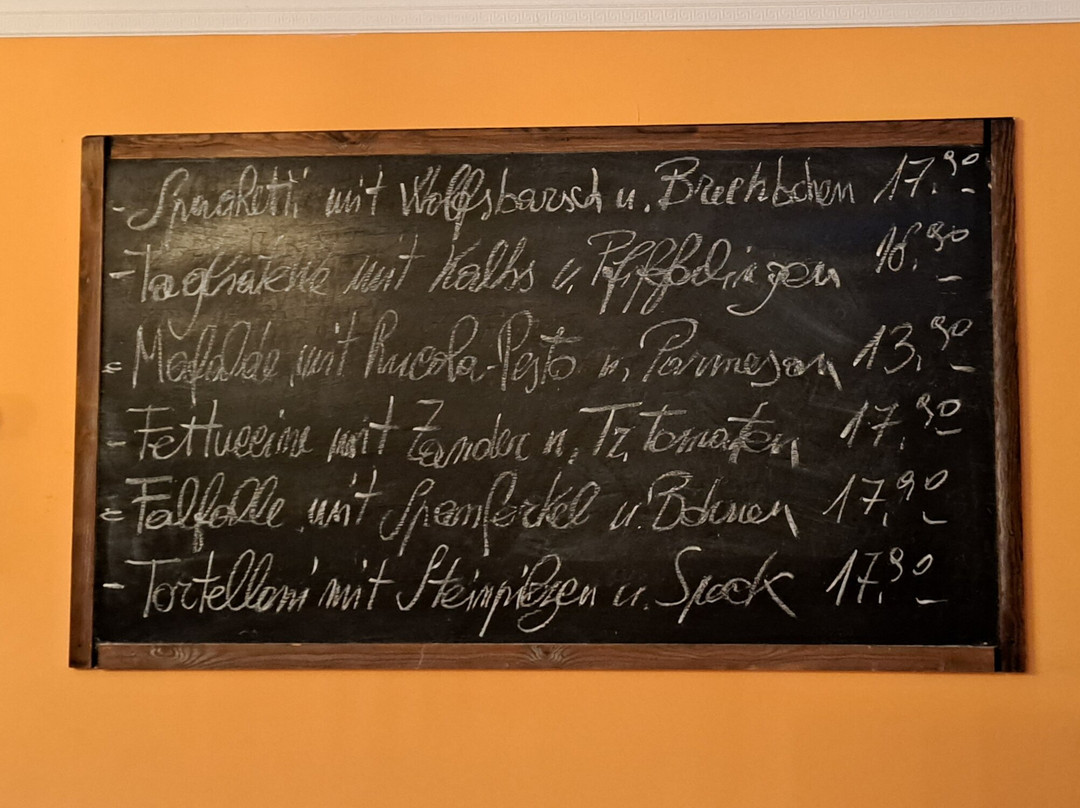 - Spaghetti mit Wolfsbarsch u. Brechbohnen 17.90
- Tagliatelle mit Kalbs u. Pfifferlingen 16.90
- Mafalde mit Rucola-Pesto u. Parmesan 13.90
- Fettuccine mit Zander u. Tz. Tomaten 17.90
- Falfalle mit Spanferkel u. Bohnen 17.90
- Tortelloni mit Steinpilzen u. Speck 17.90